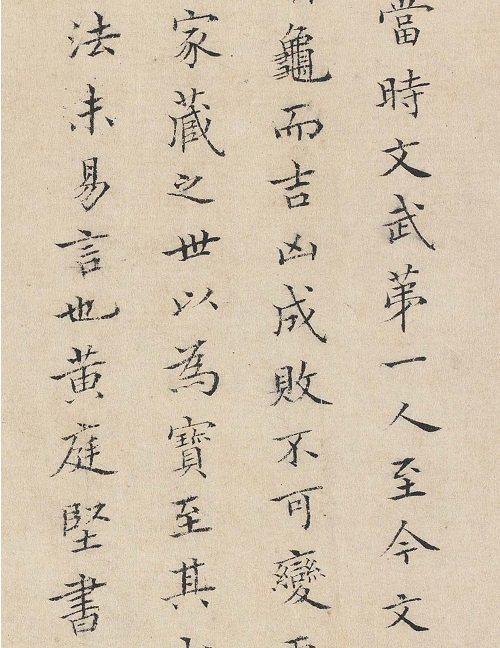 當時文武苐一人至今文
龜而吉凶成敗不可變
家藏之世以為寶至其
法未易言也黄庭堅書